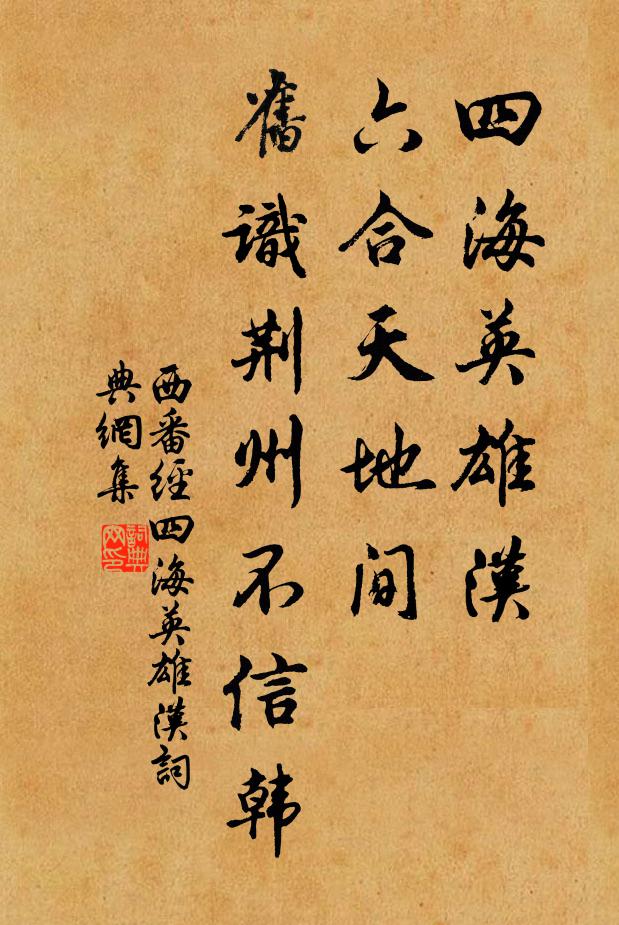 四海英雄漢
六合天地間
舊識荆州不信韩
西番經四海英雄漢詞
典網集
詞典
网印